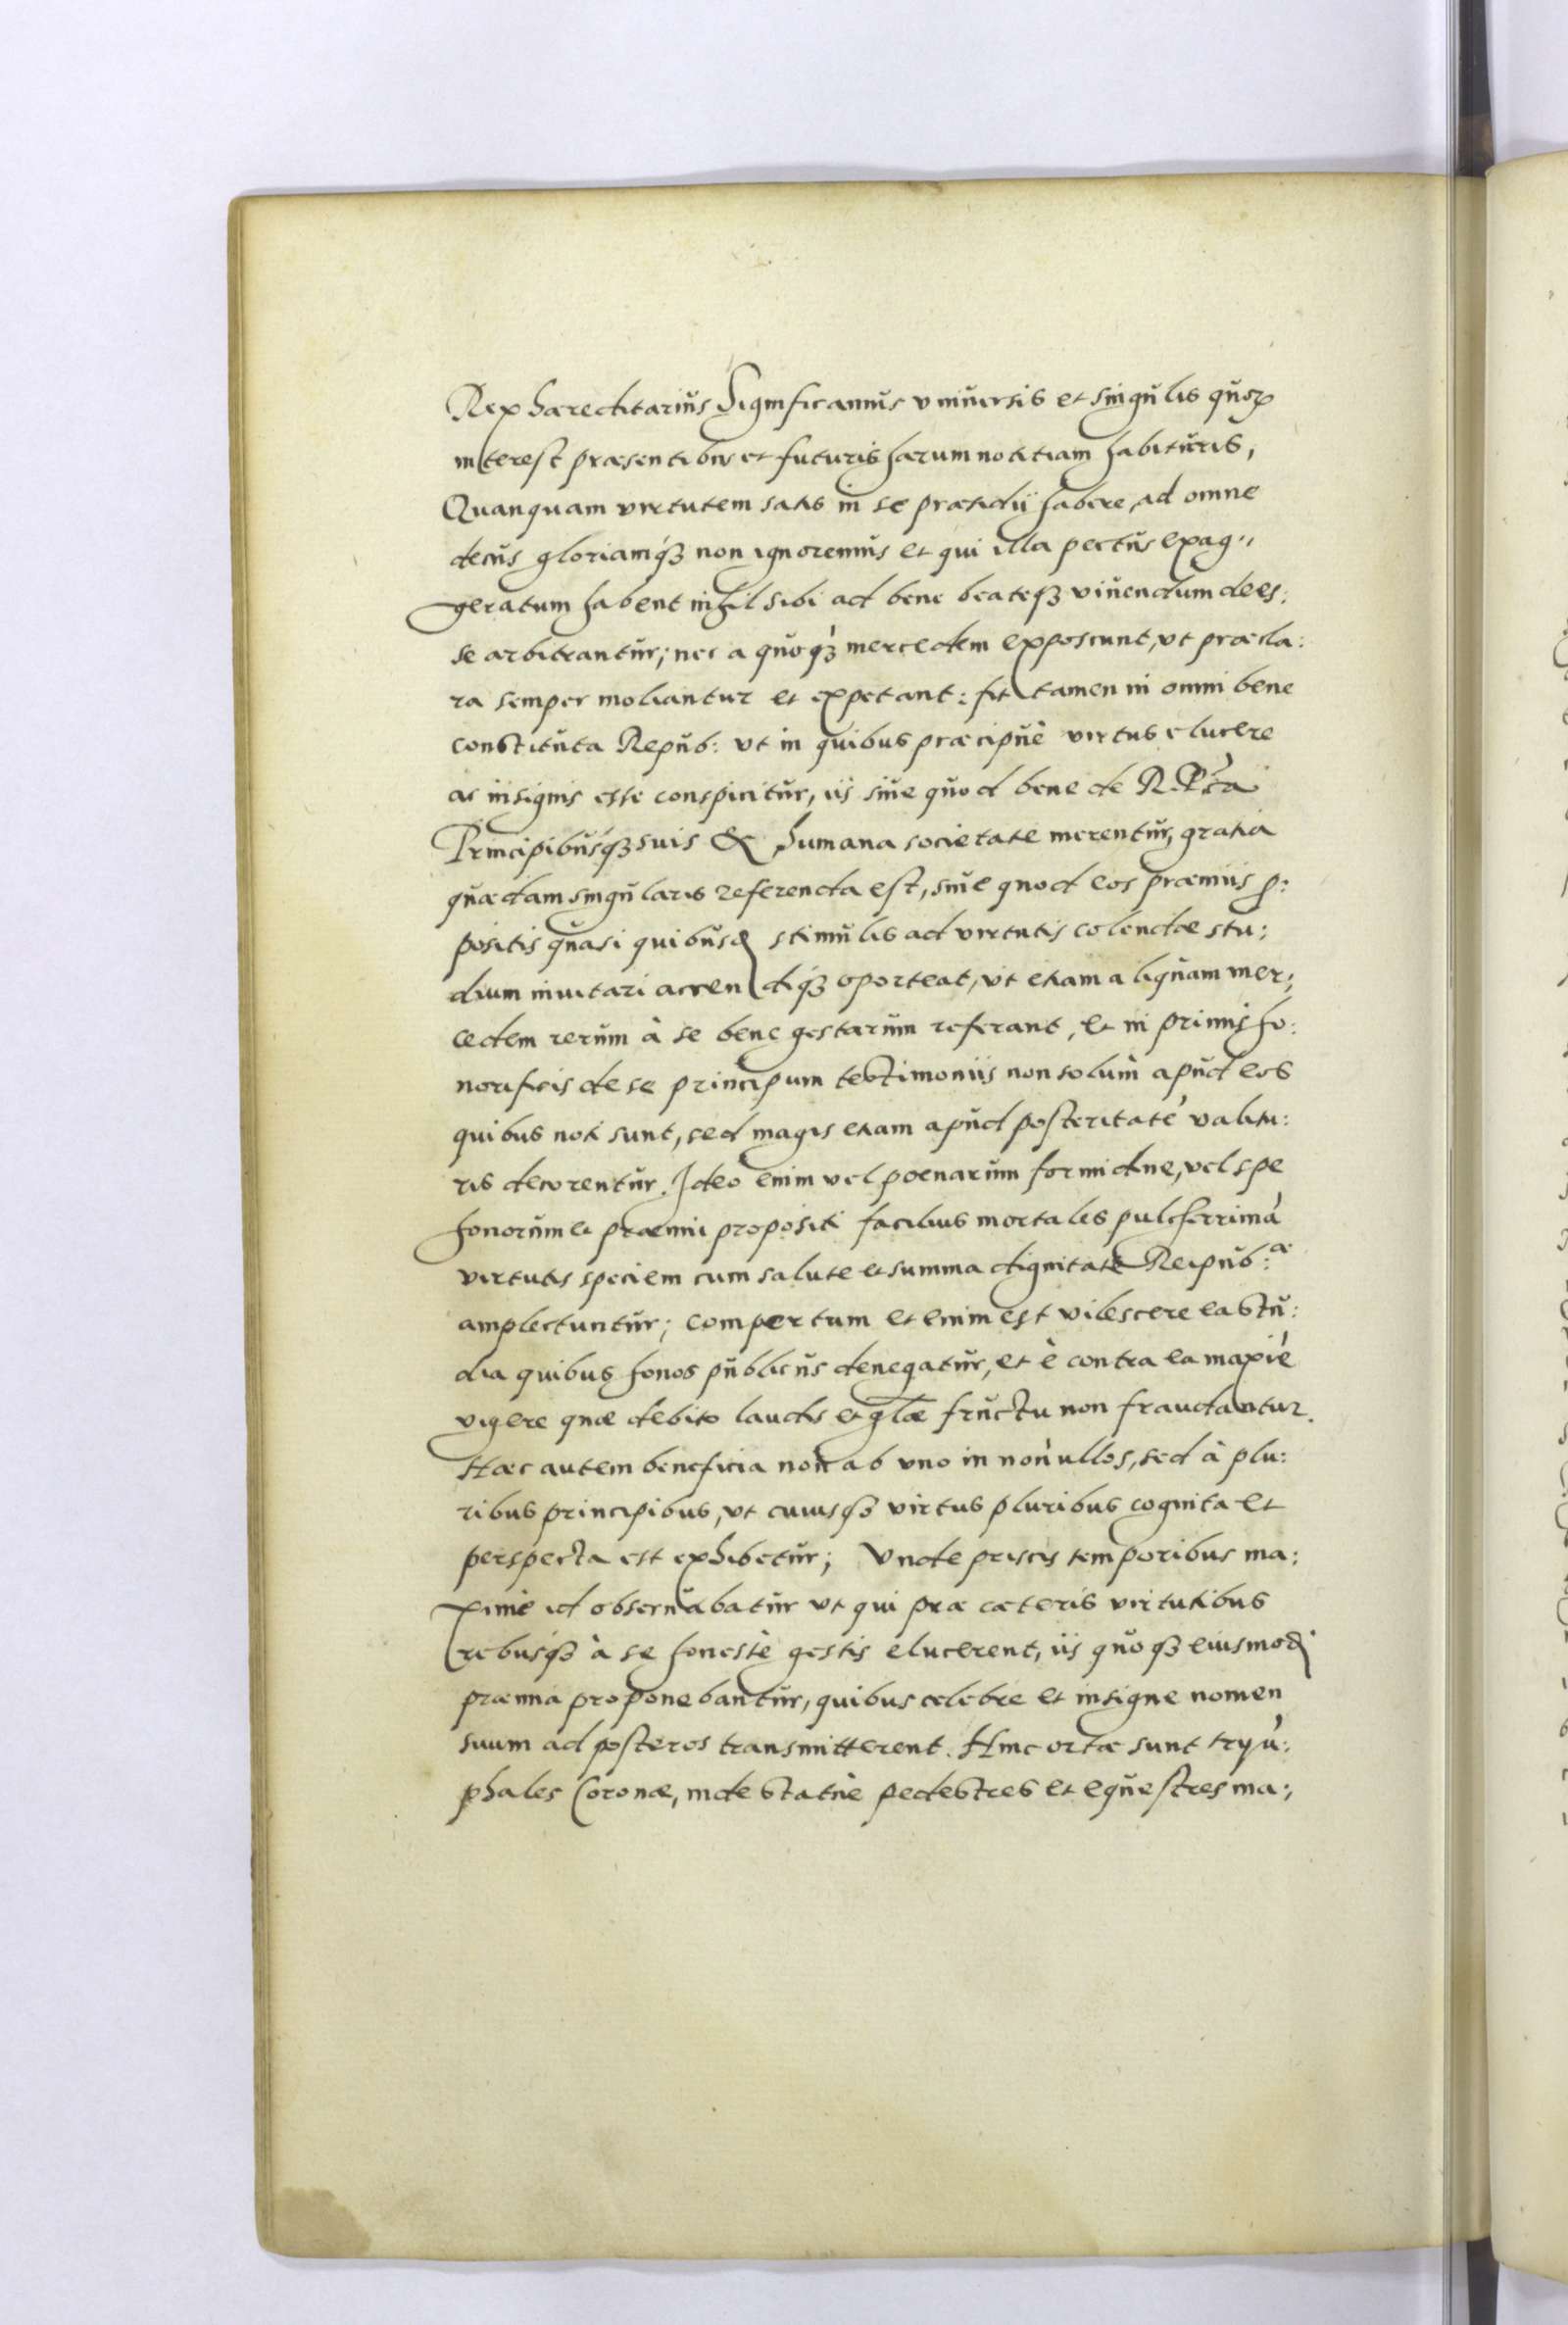 Rex haereditarius Significamus vniuersis et singulis quorum
interest praesentibus et futuris harum notitiam habituris,
Quanquam virtutem satis in se praesidij habere, ad omne
decus gloriamq3 non ignoremus et qui illa pectus exag„
geratum habent nihil sibi ad bene beateq3 viuendum dees:
se arbitrantur; nec a quoq3 mercedem exposcunt, vt praecla:
ra semper moliantur et expetant: fit tamen in omni bene
constituta Repub: vt in quibus praecipuè virtus elucere
ac insignis esse conspicitur, iis siue quod bene de R.
Principibusq3 suis & humana societate merentur, gratia
quaedam singularis referenda est, siue quod eos praemiis p:
positis quasi quibusd stimulis ad virtutis colendae stu:
dium inuitari accendiq3 oporteat, vt etiam aliquam mer:
cedem rerum à se bene gestarum referant, et in primis ho:
norificis de se principum testimoniis non solum apud eos
quibus noti sunt, sed magis etiam apud posteritatē valitu:
ris decorentur. Ideo enim vel poenarum formidine, vel spe
honorum et praemii propositi facilius mortales pulcherrimā
virtutis speciem cum salute et summa dignitate Reipub:ae
amplectuntur; compertum et enim est vilescere ea stu:
dia quibus honos publicus denegatur, et è contra ea maxiè
vigere quae debito laudis et glae fructu non fraudantur.
Haec autem beneficia non ab vno in nonnullos, sed à plu:
ribus principibus, vt cuiusq3 virtus pluribus cognita et
perspecta est exhibetur; Vnde priscis temporibus ma:
ximè id obseruabatur vt qui prae caeteris virtutibus
rebusq3 à se honestè gestis elucerent, iis quoq3 eiusmod
praemia proponebantur, quibus celebre et insigne nomen
suum ad posteros transmitterent. Hinc ortae sunt tryū:
phales Coronae, inde statuè pedestres et equestres ma: